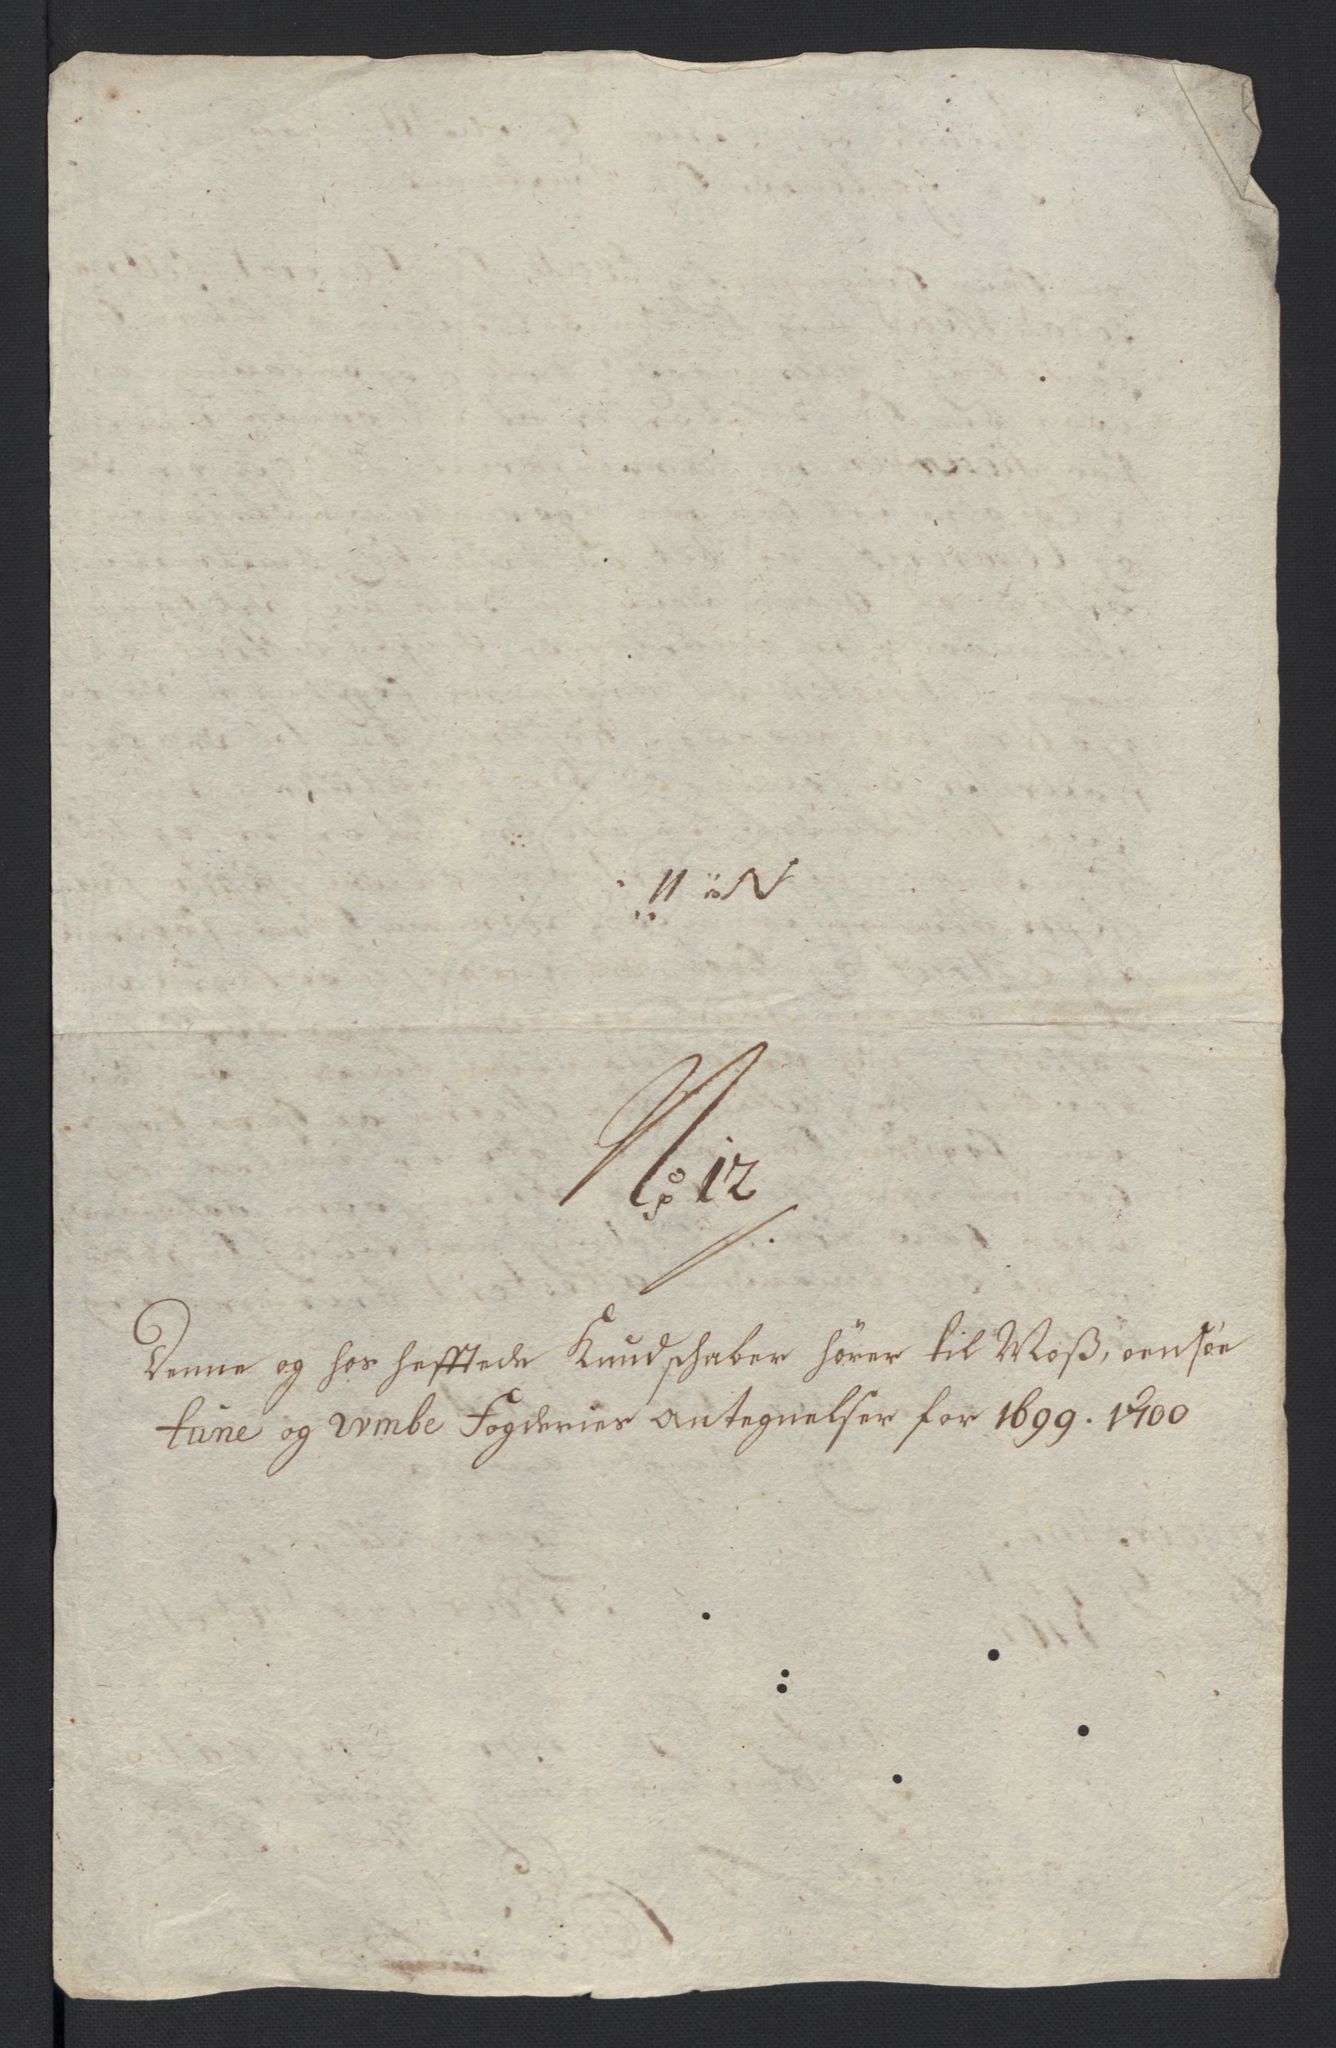 No 11
No 12
Denne og hos hefftede Kundschaber hörer til Moß, oensöe
tune og vvmbe Fogderies antegnelser for 1699. 1700